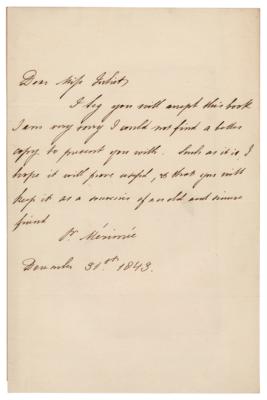 Dear Miss
I beg you will accept this book
I am very sorry I could not find a better
copy to present you with. Such as it is, I
hope it will prove useful, & that you will
keep it as a souvenir of an old and sincere
friend
Pr Mérimée
December 31st 1843.